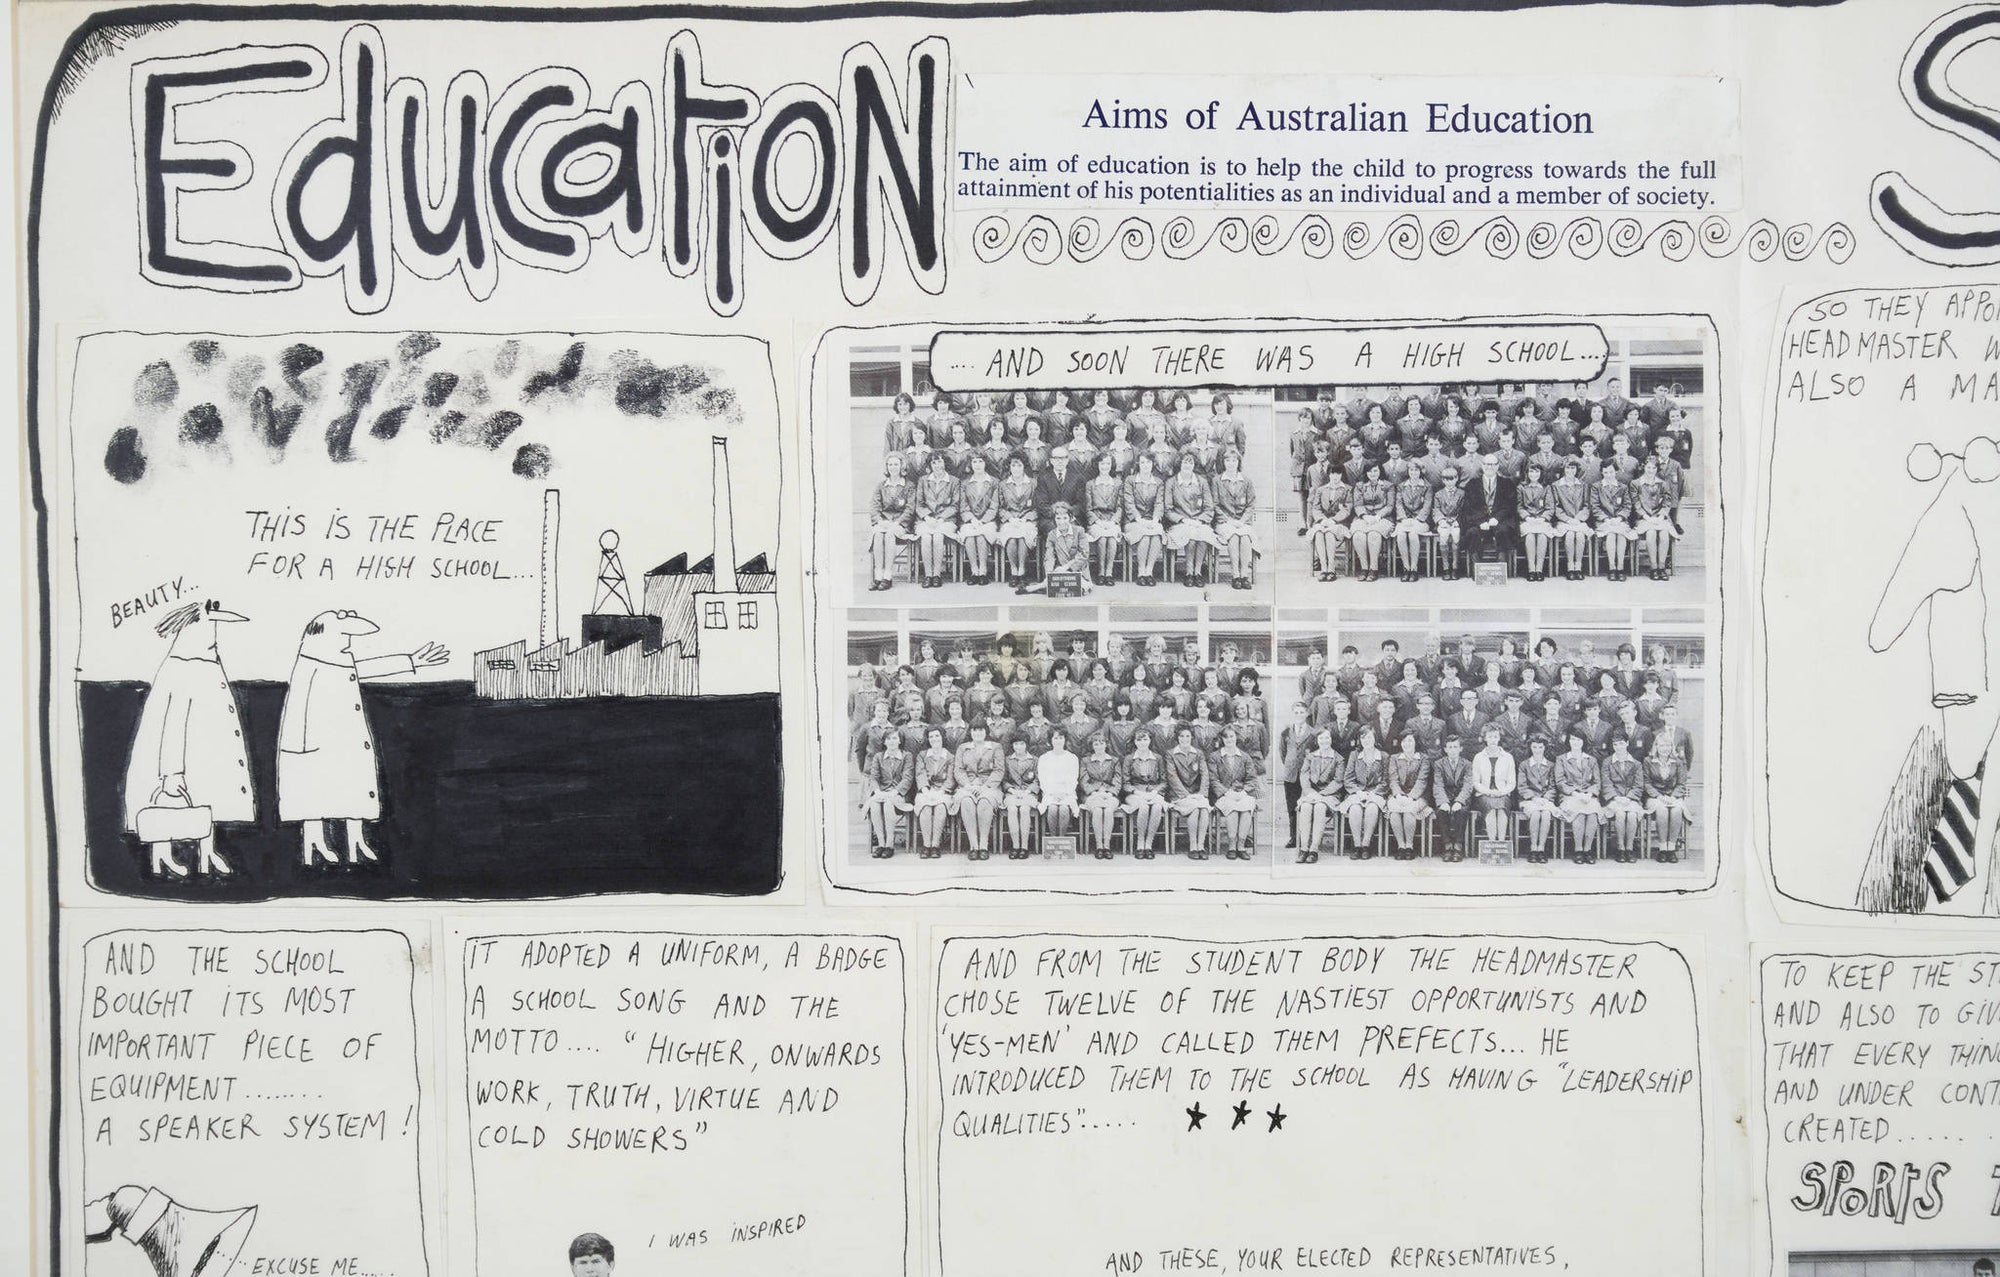 Education
Aims of Australian Education
The aim of education is to help the child to progress towards the full
attainment of his potentialities as an individual and a member of society.
THIS IS THE PLACE
FOR A HIGH SCHOOL...
BEAUTY...
.... AND SOON THERE WAS A HIGH SCHOOL....
SO THEY
HEADMASTER
ALSO A
AND THE SCHOOL
BOUGHT ITS MOST
IMPORTANT PIECE OF
EQUIPMENT.......
A SPEAKER SYSTEM!
EXCUSE ME.....
IT ADOPTED A UNIFORM, A BADGE
A SCHOOL SONG AND THE
MOTTO.... "HIGHER, ONWARDS
WORK, TRUTH, VIRTUE AND
COLD SHOWERS"
I WAS INSPIRED
AND FROM THE STUDENT BODY THE HEADMASTER
CHOSE TWELVE OF THE NASTIEST OPPORTUNISTS AND
'YES-MEN' AND CALLED THEM PREFECTS... HE
INTRODUCED THEM TO THE SCHOOL AS HAVING "LEADERSHIP
QUALITIES".....
AND THESE, YOUR ELECTED REPRESENTATIVES,
TO KEEP THE
AND ALSO TO
THAT EVERY
AND UNDER
CREATED.....
SPORTS